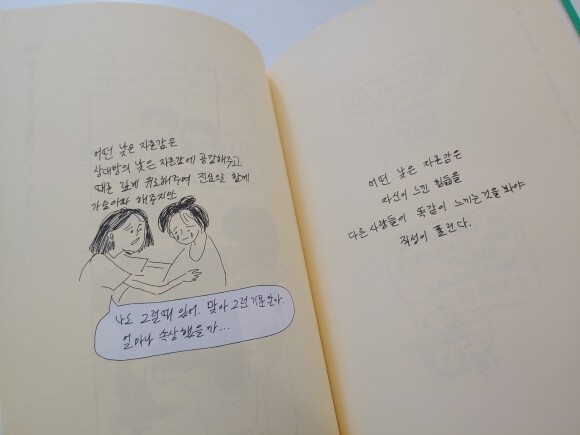 어떤 낮은 자존감은
상대방의 낮은 자존감에 공감해주고
때론 깊게 위로해주며 진심으로 함께
가슴아파 해주지만
나도 그럴때 있어. 맞아 그런기분 알아.
얼마나 속상했을까...
어떤 낮은 자존감은
자신이 느낀 힘듦을
다른 사람들이 똑같이 느끼는것을 봐야
직성이 풀린다.